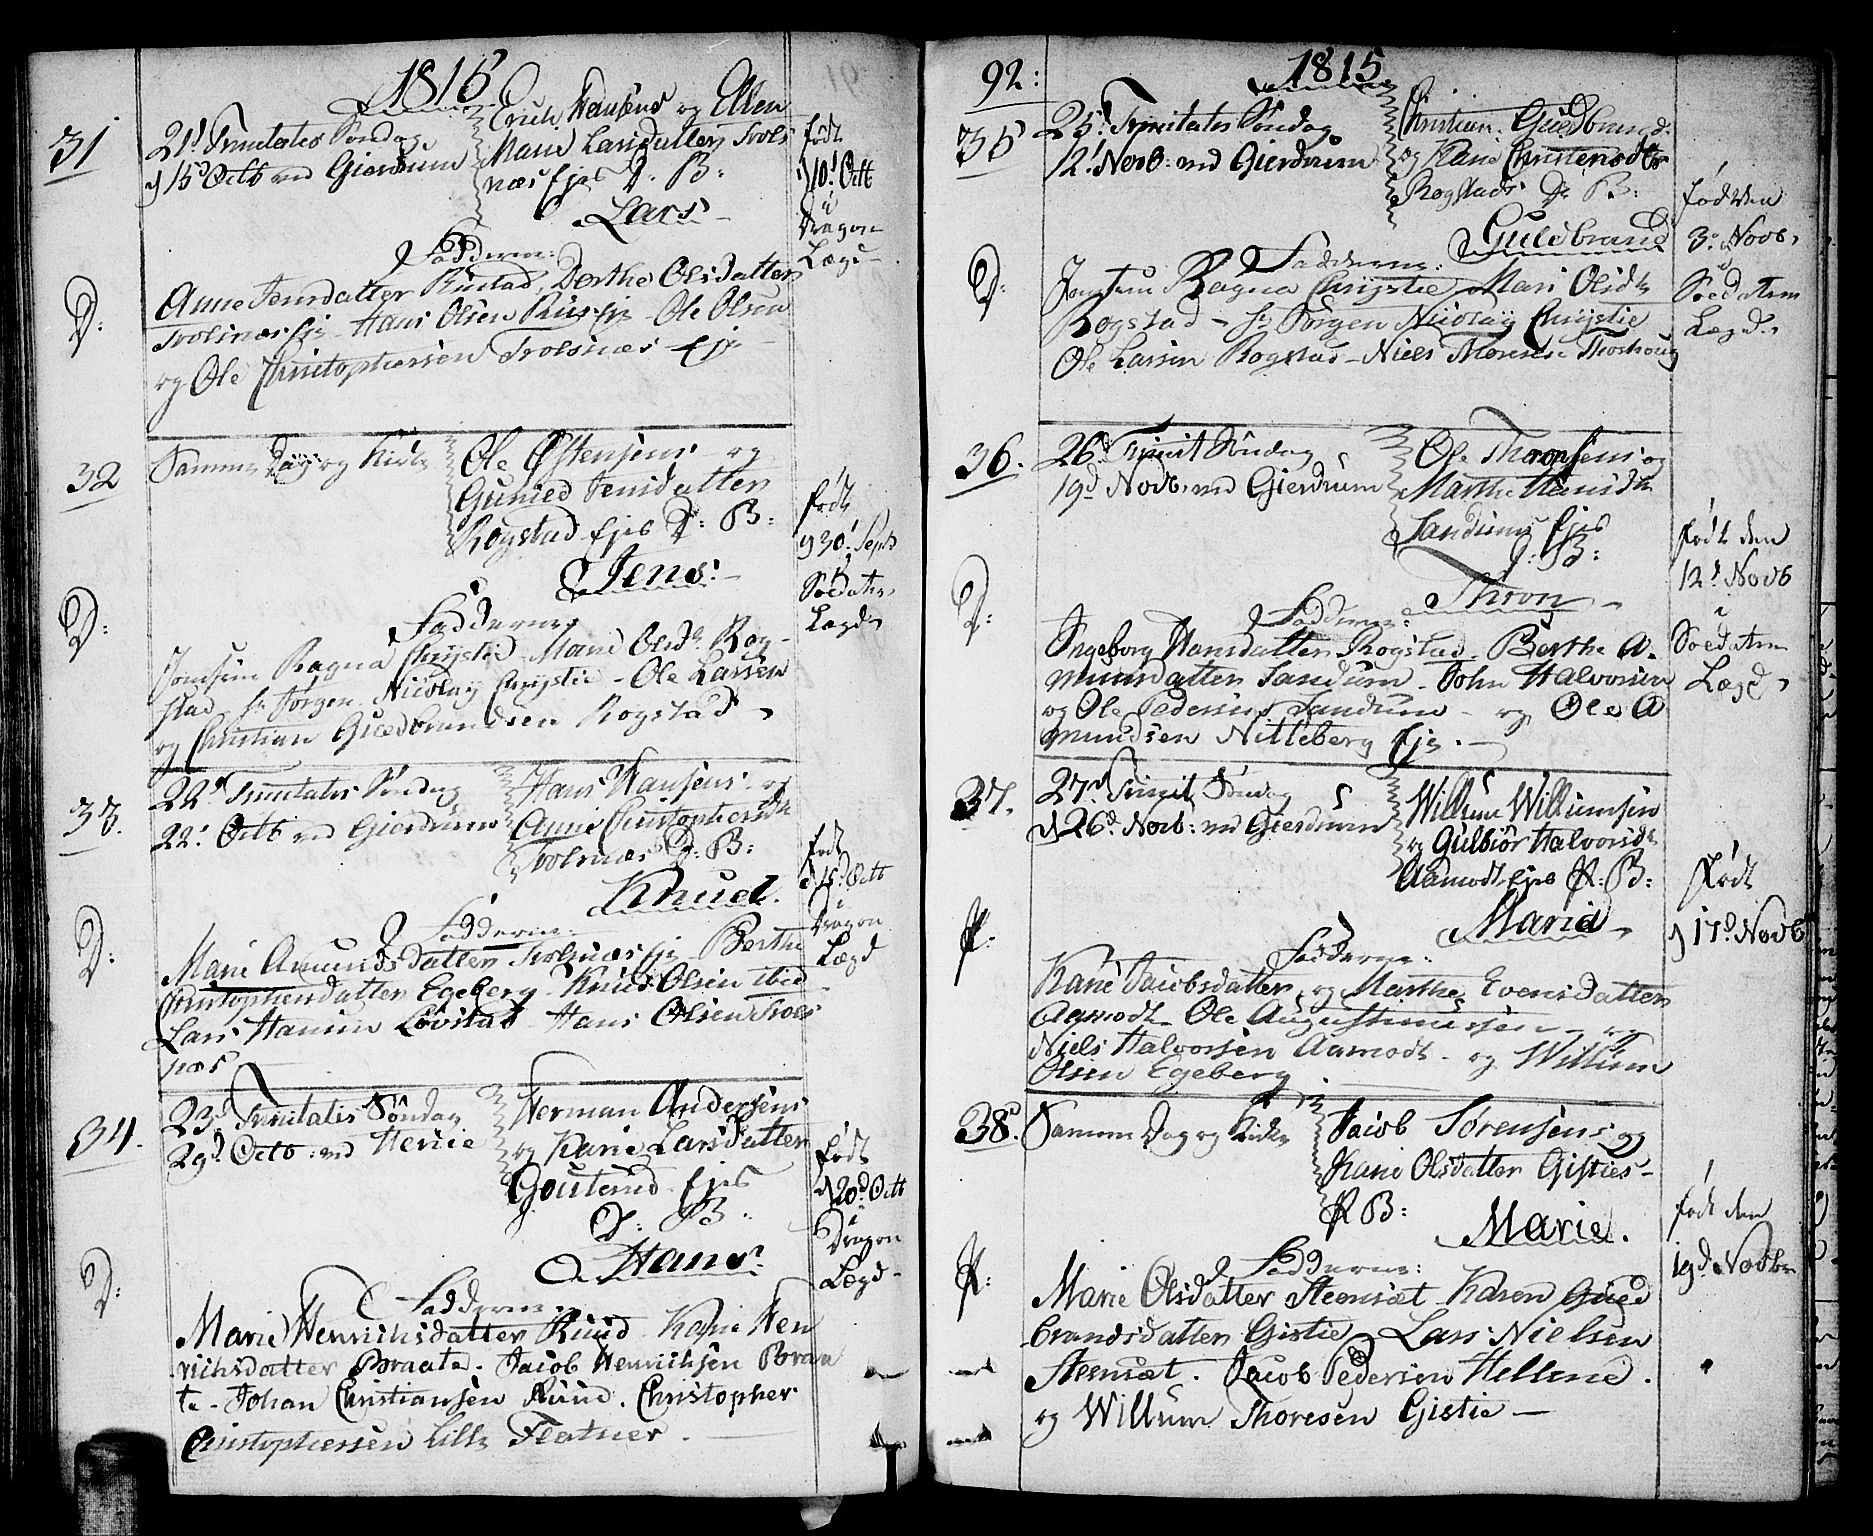 1815
31
21d Trinitatis Søndag
d 15d Octb ved Gierdrum
Erich Hansens og Ellen
Marie Larsdatter Trols
næs Ejes D. B:
Lars
født
d 10d Octb
i
Dragon
Lægd
Fadderne:
D:
Anne Jensdatter Rustad, Dorthe Olsdatter
Trolsnæs Eje - Hans Olsen Eje - Ole Olsen
og Ole Christophersen Trolsnæs Eje
32
Samme Dag og Kirke
Ole Østensens og
Guned Jensdatter
Rogstad Ejes D: B:
Jens
født
d 30d Septb
i
Soldater
Lægd
Fadderne:
D:
Jomfrue Ragna Chrystie - Marie Olsdtr Rog-
stad - Hr Jørgen Nicolay Chrystie - Ole Larsen
og Christian Guldbrandsen Rogstad
33.
22d Trinitatis Søndag
22d Octb ved Gierdrum
Hans Hansens og
Anne Christophersdtr
Trolsnæs D: B:
Knud.
født
d 15d Octb
i
Dragon
Lægd
Fadderne:
D:
Marie Amundsdatter Trolsnæs Eje - Berthe
Christophersdatter Egeberg - Knud Olsen ibid
Lars Hansen Løvstad - Hans Olsen Trols
næs
34.
23d Trinitatis Søndag
29d Octb: ved Heni​e
Herman Andersens
og Karie Larsdatter
Gouterud Ejes
D: B:
Hans
født
d 20d Octb
i
Dragon
Lægd
Fadderne:
D:
Marie Henrichsdatter Ruud - Karie Hen
richsdatter Braate. Jacob Henrichsen Braa
te - Johan Christiansen Ruud. Christopher
Christophersen Lille Flatner.
92:
1815
35
25d Trinitatis Søndag
12d Novb: ved Gierdrum
Christian Guldbrands.
og Karie Christensdtr
Rogstads D. B:
Guldbrand
født den
3d Novb.
i
Soldaten
Lægd
Fadderne:
D:
Jomfrue Ragna Chrystie, Mari Olsdtr
Rogstad - Hr Jørgen Nicolay Chrystie
Ole Larsen Rogstad - Niels Thoresen Throshoug
36.
26d Trinit Søndag
19d Novb. ved Gierdrum
Ole Thronsens og
Marthe Hansdtr
Sandums Ejes
D. B:
Thron
født den
12d Novb
i
Soldaten
Lægd
Fadderne:
D:
Ingeborg Hansdatter Rogstad. Berthe A-
mundsdatter Sandum - John Halvorsen
og Ole Pedersen Sandum - og Ole A
mundsen Nitteberg Eje.
37.
27d Trinit Søndag
d 26d Novb: ved Gierdrum
Willum Willumsen
og Gulbiør Halvorsdtr
Aamodt Ejes P: B:
Marie
født
d 17d Novb
Fadderne:
P:
Karie Jacobsdatter, og Marthe Evensdatter
Aamodt - Ole Augustinussen - og
Niels Halvorsen Aamodt - og Willum
Olsen Egeberg
38.
Samme Dag og Kirke
Jacob Sørensens og
Karie Olsdatter Gisties-
P B:
Marie.
født den
19d Novbr
Fadderne:
P:
Marie Olsdatter Steensæt - Karen Guld
brandsdatter Gistie - Lars Nielsen
Steensæt. Jacob Pedersen Hellene.
og Willum Thoresen Gistie -